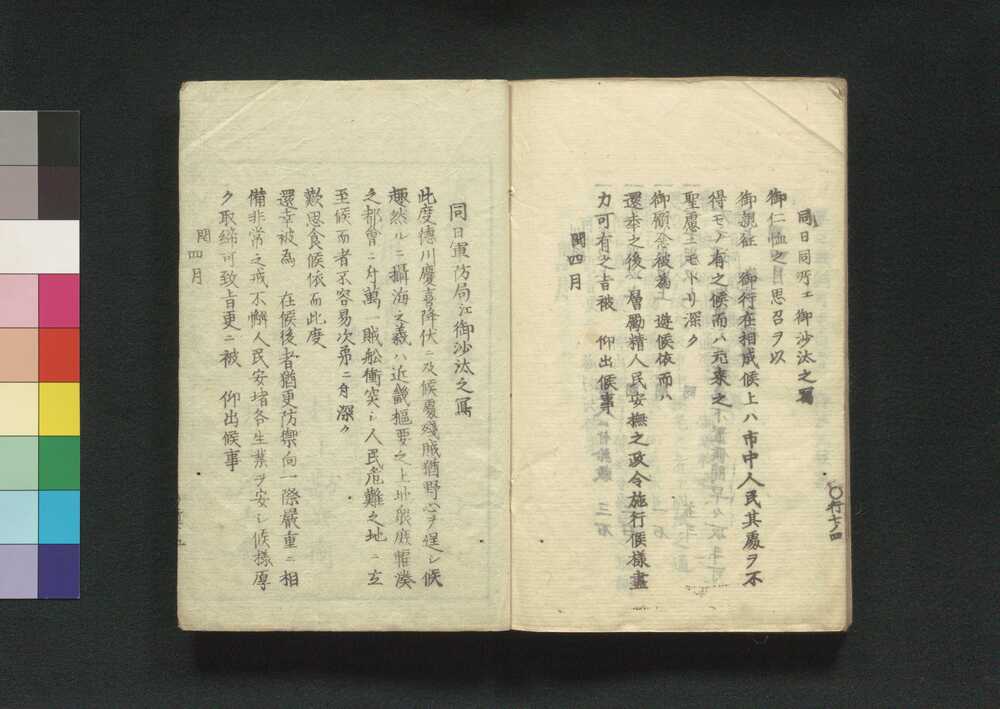 同日同所エ御沙汰之写
御仁恤之 思召ヲ以
御親征 御行在相成候上ハ市中人民其處ヲ不
得モノ有之候而ハ元来之
聖慮ニモトリ深ク
御顧念被為 遊候依而ハ
還幸之後一層勵精人民安撫之政令施行候様盡
力可有之旨被 仰出候事
閏四月
〇行七ノ四
同日軍防局江御沙汰之寫
此度徳川慶喜降伏ニ及候處残賊猶野心ヲ逞シ候
趣然ルニ攝海之義ハ近畿樞要之上地衆庶輻湊
之都會ニ付萬一賊舩衝突シ人民危難之地ニ立
至候而者不容易次第ニ付深ク
歎思食候依而此度
還幸被為 在候後者猶更防禦向一際嚴重ニ相
備非常之戒不懈人民安堵各生業ヲ安シ候様厚
ク取締可致旨更ニ被 仰出候事
閏四月